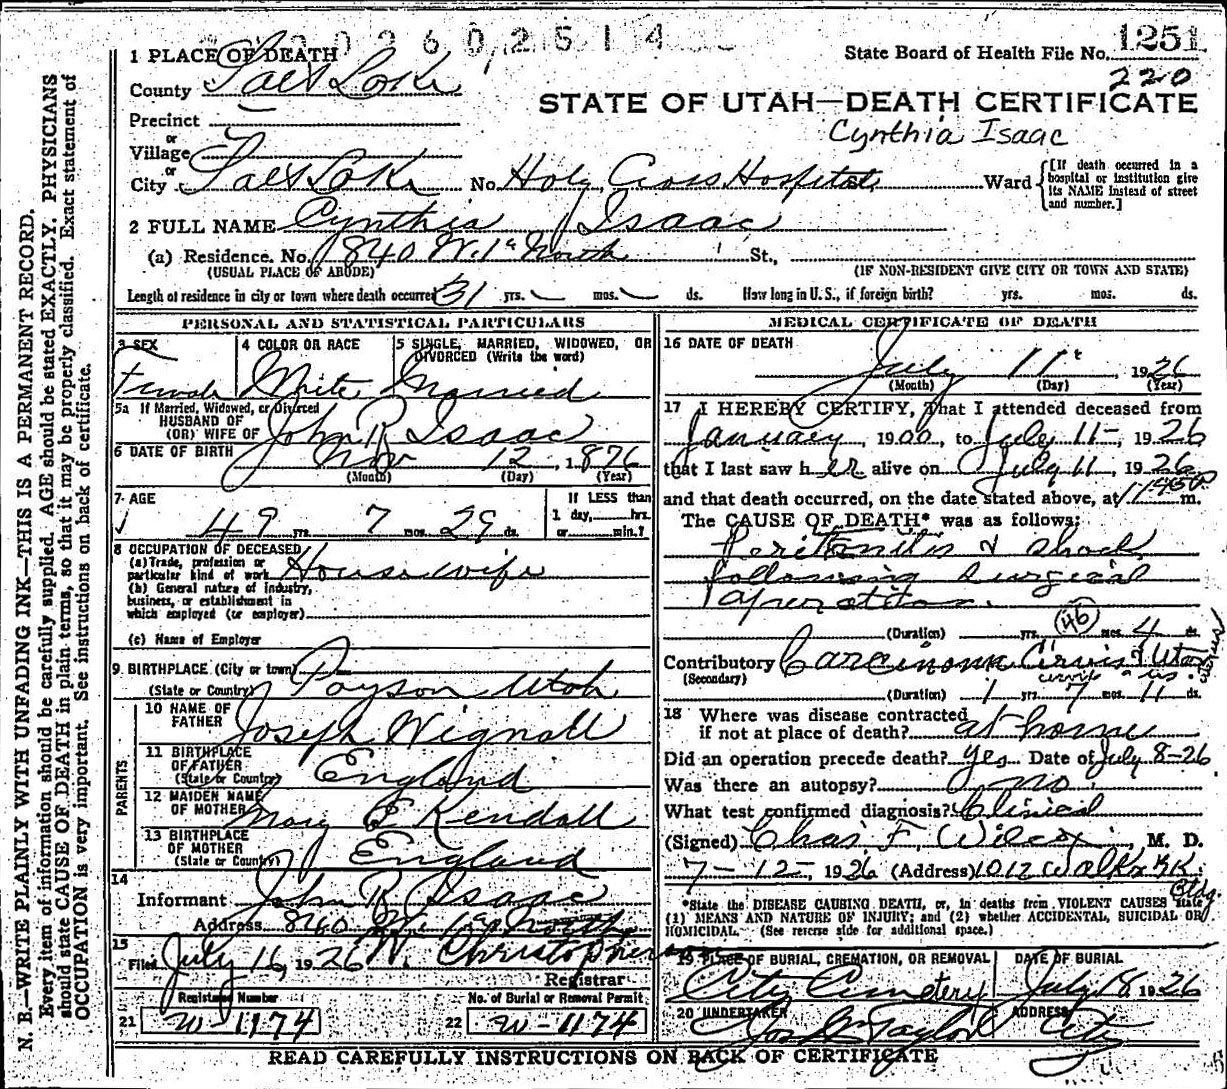 2 6 0 2 5 1 4
State Board of Health File No. 1251
220
1 PLACE OF DEATH
County Salt Lake
STATE OF UTAH—DEATH CERTIFICATE
Precinct
Cynthia Isaac
or
Village
or
City Salt Lake No. Holy Cross Hospital Ward [If death occurred in a hospital or institution give its NAME instead of street and number.]
2 FULL NAME Cynthia Isaac
(a) Residence. No. 1840 W. 1st North St.,
(USUAL PLACE OF ABODE) (IF NON-RESIDENT GIVE CITY OR TOWN AND STATE)
Length of residence in city or town where death occurred 31 yrs. — mos. — ds. How long in U. S., if foreign birth? yrs. mos. ds.
PERSONAL AND STATISTICAL PARTICULARS
3 SEX 4 COLOR OR RACE 5 SINGLE, MARRIED, WIDOWED, OR
DIVORCED (Write the word)
Female White Married
5a If Married, Widowed, or Divorced
HUSBAND OF
(OR) WIFE OF John R. Isaac
6 DATE OF BIRTH Nov 12, 1876
(Month) (Day) (Year)
7 AGE If LESS than
49 yrs. 7 mos. 29 ds. 1 day, hrs.
or min.?
8 OCCUPATION OF DECEASED
(a) Trade, profession or
particular kind of work Housewife
(b) General nature of industry,
business, or establishment in
which employed (or employer)
(c) Name of Employer
9 BIRTHPLACE (City or town) Payson Utah
(State or Country)
PARENTS
10 NAME OF
FATHER Joseph Wignall
11 BIRTHPLACE
OF FATHER England
(State or Country)
12 MAIDEN NAME
OF MOTHER Mary E Kendall
13 BIRTHPLACE
OF MOTHER England
(State or Country)
14
Informant John R. Isaac
Address 840 W. 1st North
15
Filed July 16, 1926 W. Christopherson
Registrar
Registered Number No. of Burial or Removal Permit
21 W-1174 22 W-1174
MEDICAL CERTIFICATE OF DEATH
16 DATE OF DEATH
July 11, 1926
(Month) (Day) (Year)
17 I HEREBY CERTIFY, That I attended deceased from
January, 1900, to July 11-, 1926
that I last saw her alive on July 11, 1926
and that death occurred, on the date stated above, at 1145P m.
The CAUSE OF DEATH* was as follows:
Peritonitis & shock
following surgical
operation.
46
(Duration) yrs. mos. 4 ds.
Contributory Carcinoma
(Secondary)
(Duration) 1 yrs. 7 mos. 11 ds.
18 Where was disease contracted
if not at place of death? at home
Did an operation precede death? yes Date of July 8-26
Was there an autopsy? no
What test confirmed diagnosis? Clinical
(Signed) Chas. F. Wilcox, M. D.
7-12-, 1926 (Address) 1012 Walker BK
Bldg.
*State the DISEASE CAUSING DEATH, or, in deaths from VIOLENT CAUSES state
(1) MEANS AND NATURE OF INJURY; and (2) whether ACCIDENTAL, SUICIDAL OR
HOMICIDAL. (See reverse side for additional space.)
19 PLACE OF BURIAL, CREMATION, OR REMOVAL DATE OF BURIAL
City Cemetery July 18 1926
20 UNDERTAKER ADDRESS
Jos Wm Taylor City
READ CAREFULLY INSTRUCTIONS ON BACK OF CERTIFICATE
N. B.—WRITE PLAINLY WITH UNFADING INK—THIS IS A PERMANENT RECORD.
Every item of information should be carefully supplied. AGE should be stated EXACTLY. PHYSICIANS
should state CAUSE OF DEATH in plain terms, so that it may be properly classified. Exact statement of
OCCUPATION is very important. See instructions on back of certificate.